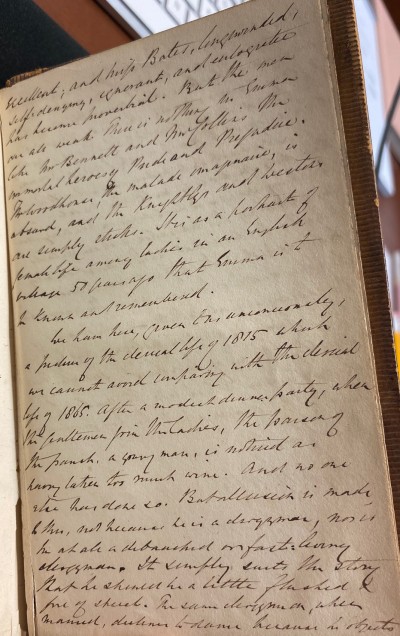 excellent; and Miss Bates, longwinded,
self-denying, ignorant, and eulogistic
has become proverbial. But the men
are all weak. There is nothing in Emma
like Mr Bennett and Mr Collins the
immortal heroes of Pride and Prejudice.
Mr Woodhouse, the malade imaginaire, is
absurd, and the Knightleys and Westons
are simply sticks. It is as a portrait of
female life among ladies in an English
village 50 years ago that Emma is to
be known and remembered.
We have here, given to us unconsciously,
a picture of the clerical life of 1815 which
we cannot avoid comparing with the clerical
life of 1865. After a modest dinner party, when
the gentlemen join the ladies, the parson of
the parish, a young man, is noticed as
having taken too much wine. And no one
else has done so. But allusion is made
to this, not because he is a clergyman, nor is
he at all a debauched or fast-living
clergyman. It simply suits the story
that he should be a little flushed &
free of speech. The same clergyman, when
married, declines to dance because he objects